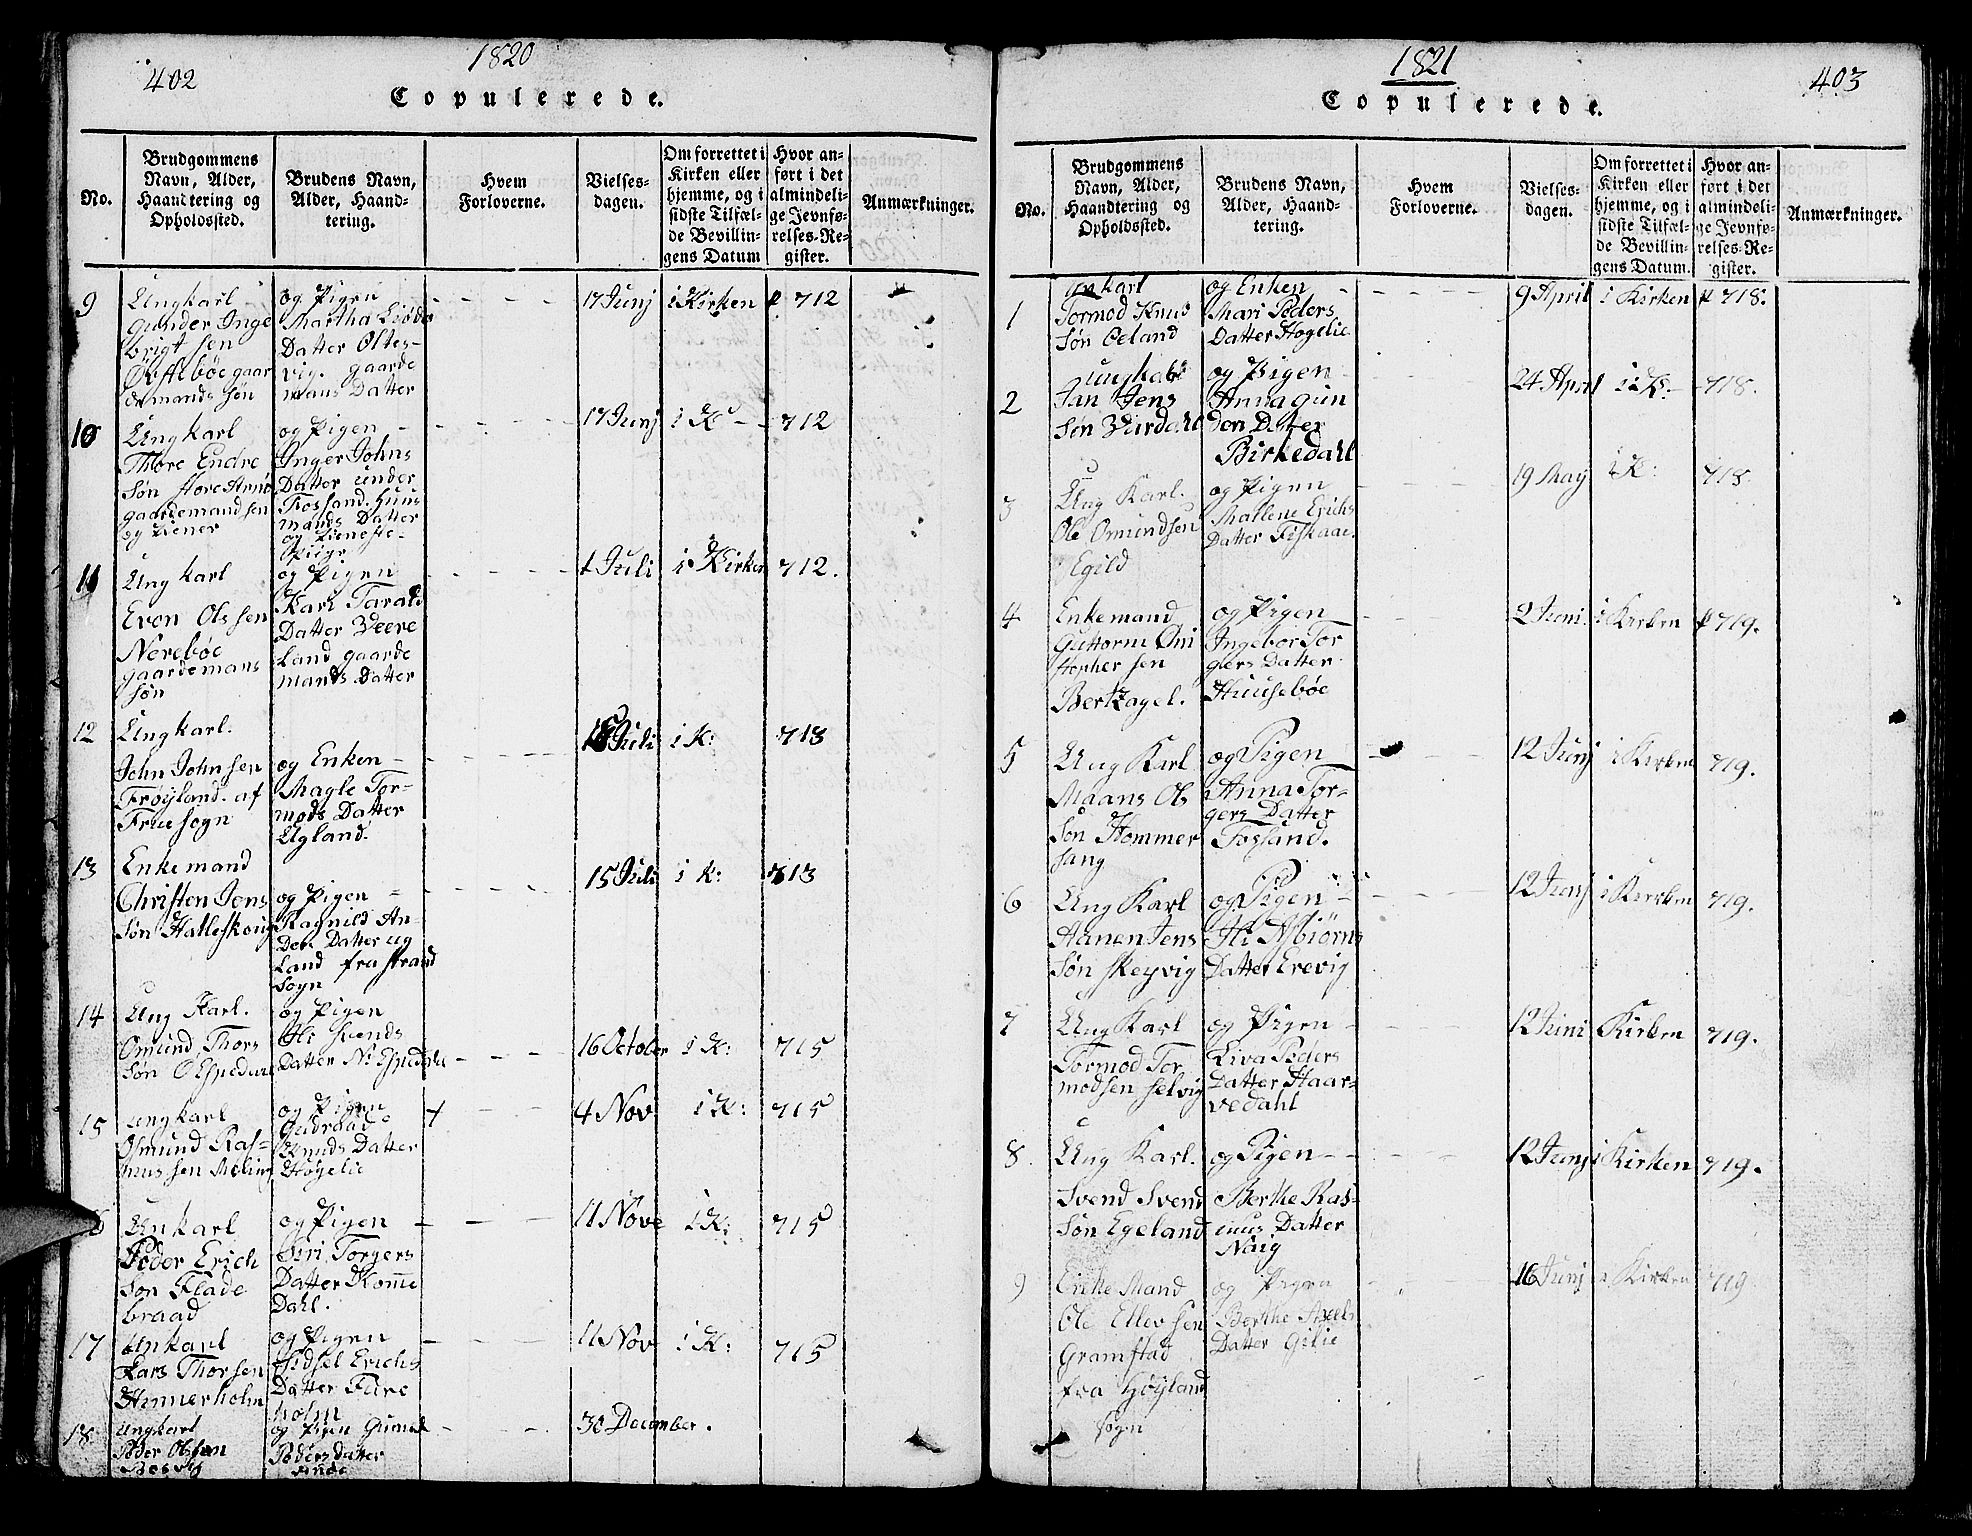 402
1820
Copulerede.
No.
Brudgommens
Navn, Alder,
Haandtering og
Opholdssted.
Brudens Navn,
Alder, Haand-
tering.
Hvem
Forloverne.
Vielses-
dagen.
Om forrettet i
Kirken eller
hjemme, og i
sidste Tilfæl-
de Bevillin-
gens Datum
Hvor an-
ført i det
almindeli-
ge Jevnfø-
relses-Re-
gister.
Anmærkninger.
9
Ungkarl
Gunder Inge
brigt sen
gaar
demands søn
og Pigen
Martha
Datter Oltes-
vig. gaarde
mans Datter
17 Junj
i Kirken
p 712
10
Ungkarl
Thore Endre
Søn
gaardemandsen
og Tiener
og Pigen
Inger Johns
Datter under
Fossand. Huus
mands Datter
og Tieneste-
Piige
17 Junj
i K
712
11
Ungkarl
Even Olssen
Nerebøe
gaardemans
søn
og Pigen
Kari Tarald
Datter Veere
Land gaarde
mands Datter
1 Juli
i Kirken
712.
12
Ungkarl.
John Johnsen
Frøyland. af
Fruesogn
og Enken
Magle Tor-
mods Datter
Ugland.
Juli
i K:
713
13
Enkemand
Christen Jens
Søn Halleskoug
og Pigen
Ragnild An-
Der Datter ug
Land fra strand
Sogn
15 Juli
i K:
713
14
Ung Karl.
Omund Thors
Søn
og Pigen
Sli Svends
Datter
16 October
i K:
715
15
ungkarl
Osmund Ras-
mussen Meling
og Pigen
Gudroue
Knuds Datter
Høgelie
4 Nov
i K:
715
Unkarl
Peder Erich
Søn Flade
braad
og Pigen
Siri Torgers
Datter Komme
Dahl.
11 Nove
i K:
715
17
Unkarl
Lars Thorsen
og Pigen
Sidsel Erichs
Datter Fure
holm
11 Nov
i K:
715
18
ungkarl
Peder Olssen
og Pigen
Peders datter
30 December.
1821
403
Copulerede.
No.
Brudgommens
Navn, Alder,
Haandtering og
Opholdssted.
Brudens Navn,
Alder, Haand-
tering.
Hvem
Forloverne.
Vielses-
dagen.
Om forrettet i
Kirken eller
hjemme, og i
sidste Tilfæl-
de Bevillin-
gens Datum.
Hvor an-
ført i det
almindeli-
ge Jevnfø-
relses-Re-
gister.
Anmærkninger.
1
Tormod Knud
Søn Oeland
og Enken
Mari Peders
Datter Høgelie
9 April
i Kirken
p 718.
2
ungkarl
Jan Jens
Søn
og Pigen
Anna Gun
der Datter
Birkedahl
24 April
i K:
718.
3
Ung Karl.
Ole Omundsen
Egild
og Pigen
Marlene Erichs
Datter Fiskaae.
19 May
i K:
718
4
Enkemand
Guttorm Chri
stopher sen
Bertzagel.
og Pigen
Ingebor Tor
gers Datter
Huusebøe
2 Juni
i Kirken
p 719.
5
Ung Karl
Maans Ols
Søn Hommer
sang
og Pigen
Anna Tor-
gers Datter
Fossand.
12 Junj
i Kirken
719.
6
Ung Karl
Aanen Jens
Søn Skeyvig
og Pigen
Sli Asbiørns
Datter Erevig
12 Junj
i Kirken
719.
7
Ung Karl
Tormod Tor
modsen selvig
og Pigen
Liva Peders
Datter Haar-
vedahl
12 Juni
Kirken
719.
8
Ung Karl.
Svend Svend
Søn Egeland
og Pigen
Berthe Ras-
mus Datter
Nøig
12 Junj
i Kirken
719.
9
Enke Mand
Ole Ellev sen
Gramstad
fra Høyland
sogn
og Pigen
Berthe Axels
Datter Gilie
16 Junj
i Kirken
719